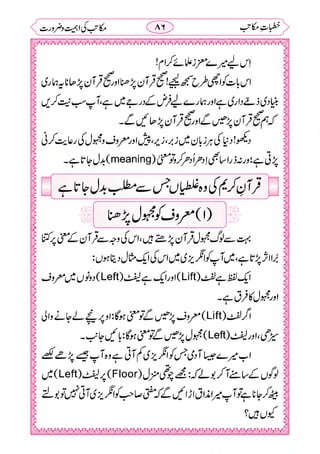 خطباتِ مکاتب ۸۶ مکاتب کی اہمیت وضرورت
اِس لیے میرے معزز علمائے کرام!
اِس بات کو اچھی طرح سمجھ لیجیے! صحیح قرآن پڑھنا اور صحیح قرآن پڑھانا یہ ہماری
بنیادی ذمے داری ہے اور ہمارے لیے فرض کے درجے میں ہے، آپ سب نیت کریں
کہ ہم صحیح قرآن پڑھیں گے اور صحیح قرآن پڑھائیں گے۔
دیکھو! دنیا کی ہر زبان میں زبر، زیر، پیش، اور معروف اور مجہول کی رعایت کرنی
پڑتی ہے؛ اور نہ ذرا سا بھی اِدھر اُدھر کرو تو معنیٰ (meaning) بدل جاتا ہے۔
قرآنِ کریم کی وہ غلطیاں جس سے مطلب بدل جاتا ہے
(۱) معروف کو مجہول پڑھنا
بہت سے لوگ مجہول قرآن پڑھتے ہیں، اس کی وجہ سے قرآن کے معنیٰ پر کتنا
بُرا اثر پڑتا ہے، میں آپ کو انگریزی میں اس کی ایک مثال دیتا ہوں:
ایک لفظ ہے لِفٹ (Lift) اور ایک ہے لیفٹ (Left) دونوں میں معروف
اور مجہول کا فرق ہے۔
اگر لفٹ (Lift) معروف پڑھیں گے تو معنیٰ ہوگا: اوپر نیچے لے جانے والی
سیڑھی، اور لیفٹ (Left) مجہول پڑھیں گے تو معنیٰ ہوگا: بائیں جانب۔
اب میرے جیسا آدمی جس کو انگریزی کم آتی ہے وہ آپ جیسے پڑھے لکھے
لوگوں کے سامنے آ کر بولے کہ: مجھے چوتھی منزل (Floor) پر لیفٹ (Left) میں
بیٹھ کر جانا ہے تو آپ میرا مذاق اڑائیں گے کہ مفتی صاحب کو انگریزی آتی نہیں تو بولتے
کیوں ہیں؟